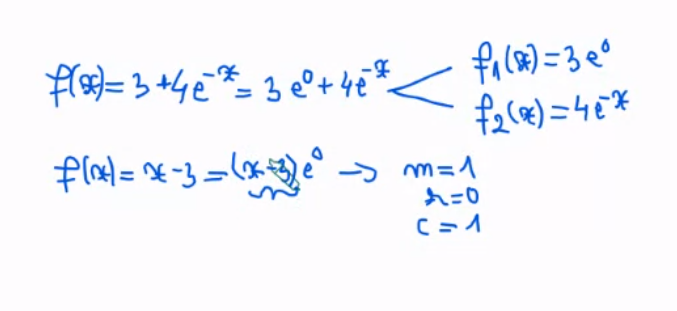 f(x)=3+4e^{-x}=3e^0+4e^{-x}
f_1(x)=3e^0
f_2(x)=4e^{-x}
f(x)=x-3=(x-3)e^0 → m=1
r=0
c=1